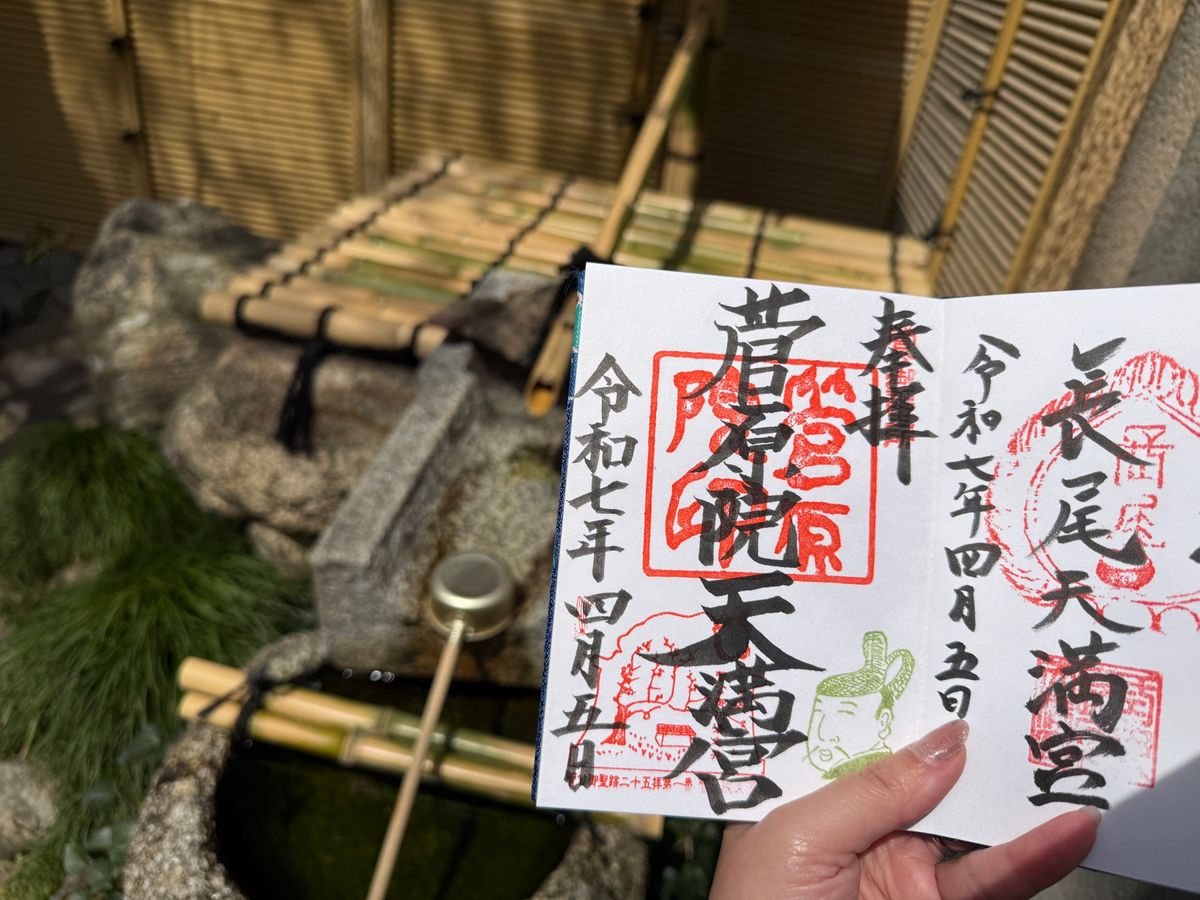 長尾天満宮
令和七年四月五日
奉拝
菅原院天満宮
菅原
院印
令和七年四月五日
御聖蹟二十五拝第一